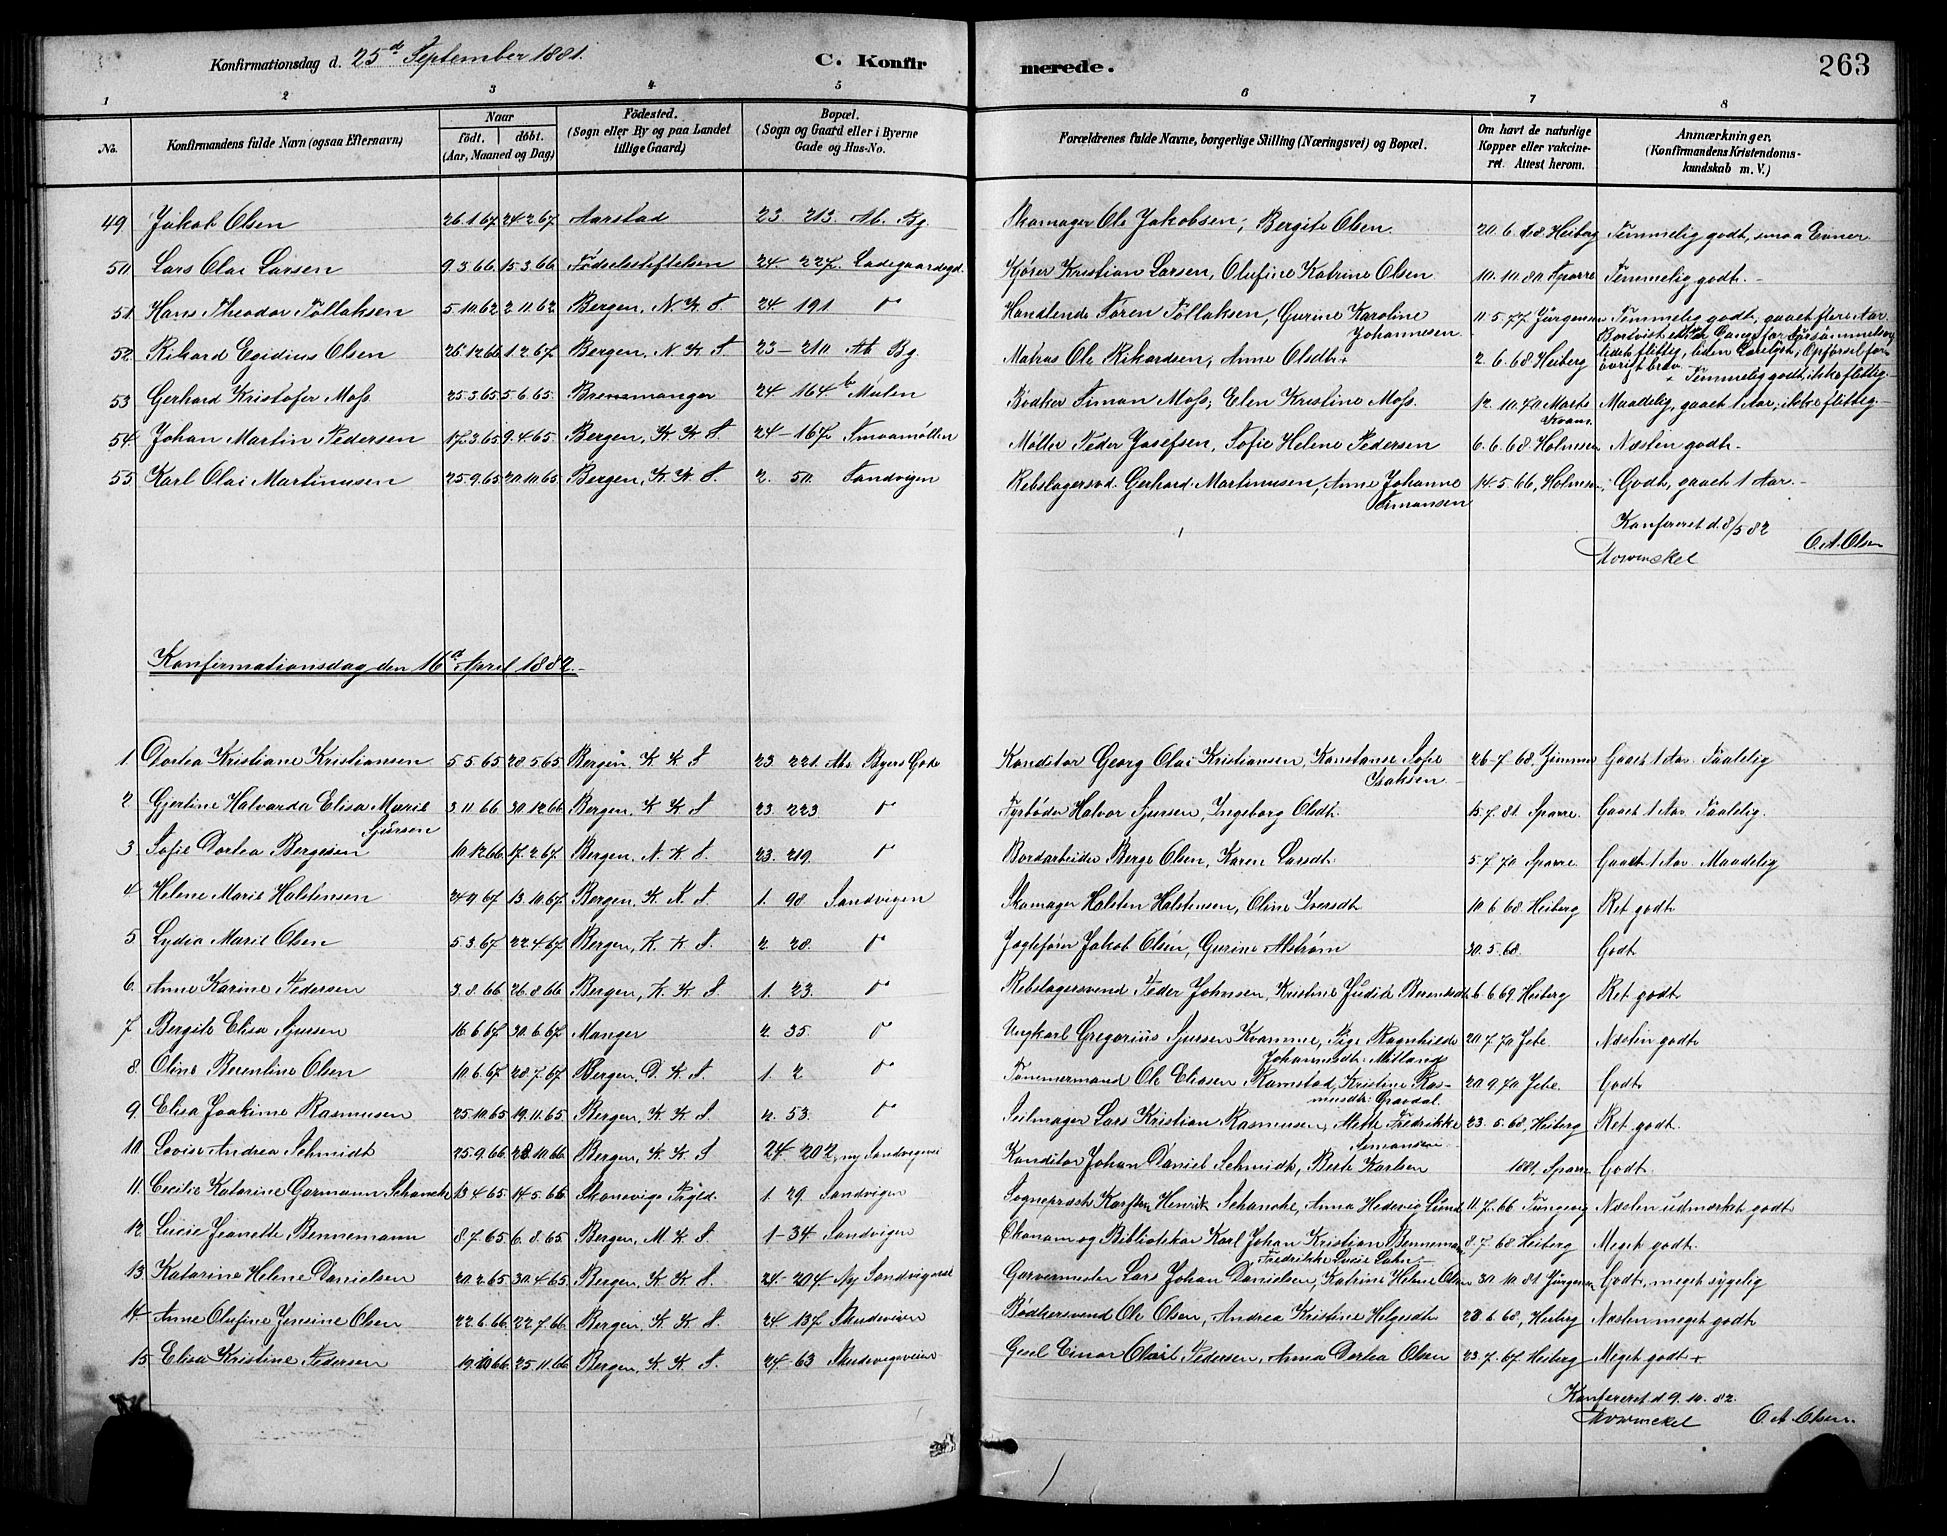 Konfirmationsdag d. 25de September 1881. C. Konfir merede. 263
1 2 3 4 5 6 7 8
No. Konfirmandens fulde Navn (ogsaa Efternavn) Naar födt. döbt. (Aar, Maaned og Dag) Födested. (Sogn eller By og paa Landet tillige Gaard) Bopæl. (Sogn og Gaard eller i Byerne Gade og Hus-No. Forældrenes fulde Navne, borgerlige Stilling (Næringsvei) og Bopæl. Om havt de naturlige Kopper eller vakcineret. Attest herom. Anmærkninger. (Konfirmandens Kristendomskundskab m. V.)
49 Jakob Olsen 26.1.67 24.2.67 Aarstad 23. 213. Ab. Bg. Skomager Ole Jakobsen, Bergite Olsen 20.6.68 Heiberg Temmelig godt, smaa Evner
50 Lars Olai Larsen 9.3.66 15.3.66 Fødselsstiftelsen 24. 227. Ladegaardsgd. Kjører Kristian Larsen, Olufine Katrine Olsen 10.10.80 Sparre Temmelig godt.
51. Hans Theodor Tollaksen 5.10.62 2.11.62 Bergen, N. K. S 24 191 " Handlende Søren Tollaksen, Gurine Karoline Johannesen 11.5.77 Jürgensen Temmelig godt, gaaet flere Aar.
52. Rikard Egidius Olsen 26.12.66 1.2.67 Bergen, N. K. S 23-210 Ab. Bg. Matros Ole Rikardsen, Anne Olsdtr 2.6.68 Heiberg Temmelig godt, ikke flittig.
53 Gerhard Kristofer Moss 25.3.65 5.6.65 Bremanger 24 164b Mulen Bødker Simon Moss, Elen Kristine Moss. 12.10.70 Maadelig, gaaet 1 Aar, ikke flittig.
54. Johan Martin Pedersen 17.3.65 9.4.65 Bergen, K. K. S 24-167 Smaamøllen Møller Peder Josefsen, Sofie Helene Pedersen 6.6.68 Holmsen Næsten godt.
55 Karl Olai Martinusen 25.9.65 20.10.65 Bergen, K. K. S. 2. 50 Sandvigen Rebslagersvd. Gerhard Martinusen, Anne Johanne Simonsen 14.5.66, Holmsen, Godt, gaaet 1 Aar.
Konfereret d. 8/5 82
Mowinckel O. A. Olsen
Konfirmationsdag den 16de April 1882.
1 Dortea Kristiane Kristiansen 5.5.65 28.5.65 Bergen. K. K. S 23 221. Ab. Byens Gade Konditor Georg Olai Kristiansen, Konstanse Sofie Isaksen 26-7.68 Gaaet 1 Aar. Taalelig
2 Gjertine Halvarda Elisa Marie Sjursen 3.11.66 30.12.66 Bergen, K. K. S. 23. 223 " Fyrbøder Halvor Sjursen, Ingeborg Olsdtr. 15.7.81. Sparre. Gaaet 1 Aar. Taalelig.
3 Sofie Dortea Bergesen 10.12.66 17.2.67 Bergen, N. K. S. 23. 219. " Bordarbeider Berge Olsen, Karen Larsdtr. 5.7.70 Sparre. Gaaet 1 Aar. Maadelig
4. Helene Marie Halstensen 24.9.67 13.10.67 Bergen, K. K. S 1. 98 Sandvigen Skomager Halsten Halstensen, Oline Iversdtr 10.6.68 Heiberg Ret godt
5. Lydia Marie Olsen 5.3.67 22.4.67 Bergen, K. K. S. 2. 28. " Jagtefører Jakob Olsen, Gurine Alstrøm 30.5.68. Godt
6. Anne Karine Pedersen 3.8.66 26.8.66 Bergen, K. K. S. 1. 23. " Rebslagersvend Peder Johnsen, Kristine Judid Berentsdtr 6.6.69 Heiberg Ret godt
7 Bergite Elisa Sjursen 16.6.67 30.6.67 Manger 2. 35. " Ungkarl Gregorius Sjursen Kvamme, Pige Ragnhilde Johannesdtr. Mitlang 20.7.70 Jebe. Næsten godt
8. Oline Berentine Olsen 10.6.67 28.7.67 Bergen, D. K. S. 1. 2 " Tømmermand Ole Eliasen Ramstad, Kristine Rasmusdtr. Gravdal. 20.9.70 Jebe. Godt
9. Elisa Joakime Rasmusen 25.10.65 19.11.65 Bergen, K. K. S 2. 53. " Seilmager Lars Kristian Rasmusen, Mette Fredrikke Simonsen 23.5.68, Heiberg Ret godt
10. Lovise Andrea Schmidt 25.9.66 28.10.66 Bergen, K. K. S 24. 202, ny Sandvigsvei Konditor Johan Daniel Schmidt, Berte Karlsen 1881. Sparre Godt.
11. Cecilie Katarine Garmann Schanche 13.4.65 14.5.66. Skonevigs Pgjld. 1. 29. Sandvigen Sogneprest Karsten Henrik Schanche, Anna Hedevig Lund 11.7.66 Næsten udmærket godt
12. Lucie Jeanette Bennemann 8.7.65 6.8.65 Bergen, M. K. S. 1-34 Sandvigen Økonom og Bibliotekar Karl Johan Kristian Bennemann, Fredrikke Lucie 8.7.68 Heiberg Meget godt.
13. Katarine Helene Danielsen 20.2.65 30.4.65 Bergen, K. K. S. 24-204 Ny Sandvigsvei Garvermester Lars Johan Danielsen, Katrine Helene Olsen 30.10.81 Jürgensen Godt, meget sygelig
14. Anne Olufine Jensine Olsen 22.6.66. 22.7.66. Bergen, K. K. S. 24. 137 Skudevigen Bødkersvend Ole Olsen, Andrea Kristine Helgesdtr 28.6.68, Heiberg Næsten meget godt
15. Elisa Kristine Pedersen 19.10.66. 25.11.66 Bergen, K. K. S. 24-63 Skudevigsveien Einar Pedersen, Anna Dortea Olsen 23.7.67 Heiberg Meget godt
Konfereret d. 9.10.82.
Mowinckel O. A. Olsen.